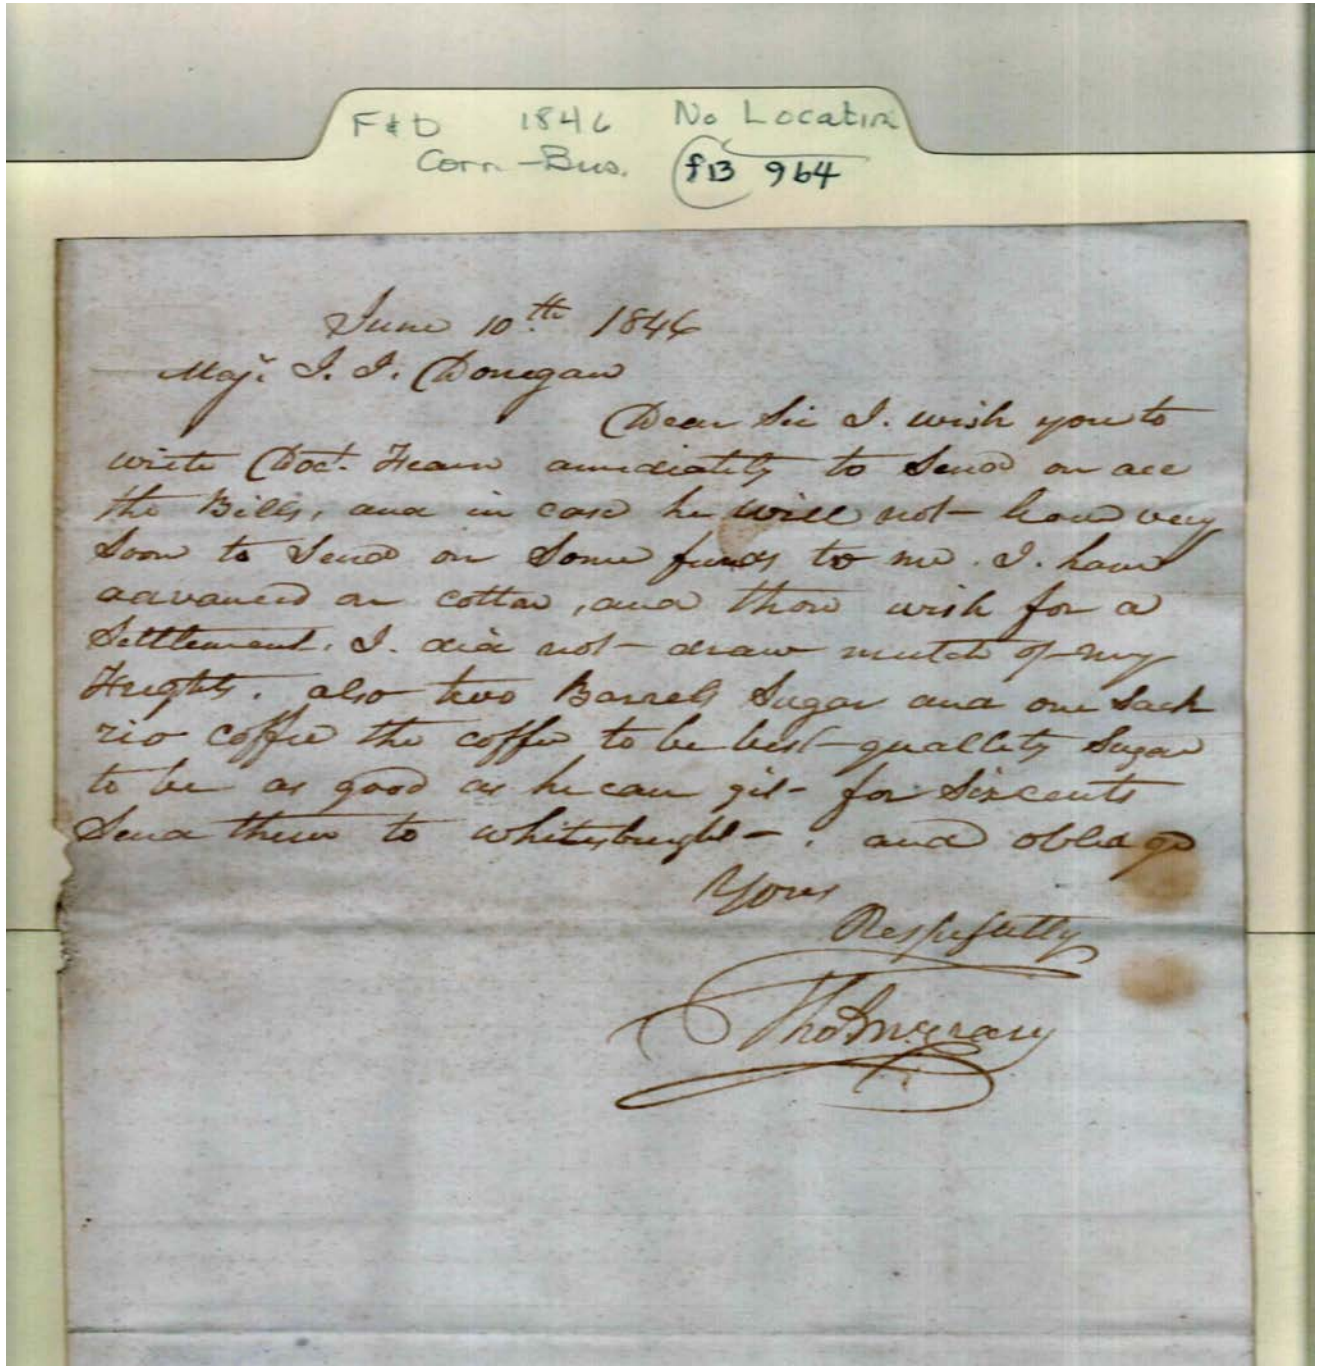 F&D 1846 No Location
Corr.-Bus. fB 964
June 10th 1846
Majr. J. J. Donegan
Dear Sir I. wish you to
write Doct. Fearn amediately to Send on all
the Bills, and in case he will not – have very
Soon to Send on Some funds to me. I. have
advanced on cotton, and those wish for a
Settlement. I. did not – draw mutch of my
Freights. also two Barrels Sugar and one Sack
rio coffee the coffe to be best – quallity Sugar
to be as good as he can git – for Six cents
Send them to whitesburght – . and obleage
Yours
Respifully
Tho McCrary